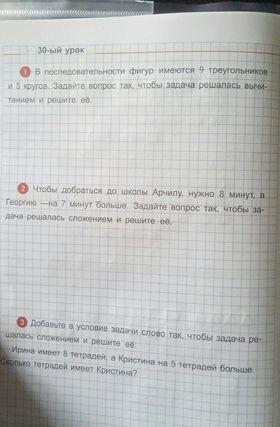 30-ый урок
1 В последовательности фигур имеются 9 треугольников
и 5 кругов. Задайте вопрос так, чтобы задача решалась вычи-
танием и решите её.
2 Чтобы добраться до школы Арчилу, нужно 8 минут, а
Георгию —на 7 минут больше. Задайте вопрос так, чтобы за-
дача решалась сложением и решите её.
3 Добавьте в условие задачи слово так, чтобы задача ре-
шалась сложением и решите её:
Ирина имеет 8 тетрадей, а Кристина на 5 тетрадей больше.
Сколько тетрадей имеет Кристина?